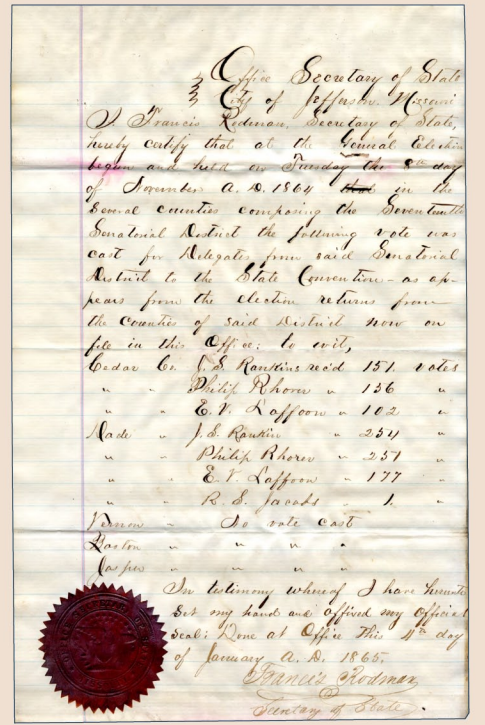 Office Secretary of State
City of Jefferson. Missouri
I Francis Rodman, Secretary of State,
hereby certify that at the General Election
begun and held on Tuesday the 8th day
of November A. D. 1864 that in the
several counties composing the Seventeenth
Senatorial District the following vote was
cast for Delegates from said Senatorial
District to the State Convention - as ap-
pears from the election returns from
the counties of said District now on
file in this Office; to wit,
Cedar Co. J. S. Rankins rec'd 151. votes
" " Philip Rhorer " 136 "
" " E. V. Laffoon " 102 "
Dade " J. S. Rankin " 254 "
" " Philip Rhorer " 251 "
" " E. V. Laffoon " 177 "
" " R. S. Jacobs " 1. "
Vernon " No vote cast
Barton " " " "
Jasper " " " "
In testimony whereof I have hereunto
set my hand and affixed my official
seal; Done at Office this 4th day
of January A. D. 1865.
Francis Rodman
Secretary of State.